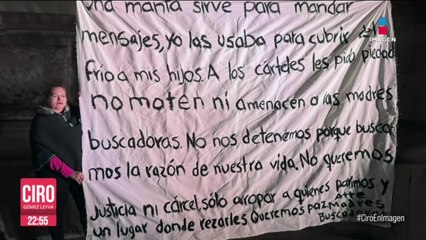 una manta sirve para mandar
mensajes, yo las usaba para cubrir del
frio a mis hijos. A los cárteles les pido piedad
no maten ni amenacen a las madres
buscadoras. No nos detenemos porque busca
mos la razón de nuestra vida. No queremos
Justicia ni cárcel, sólo arropar a quienes parimos y
un lugar donde rezarles Queremos paz Madres
Atte
Busca
IMAGEN
CIRO
GÓMEZ LEYVA
22:55
#CiroEnImagen